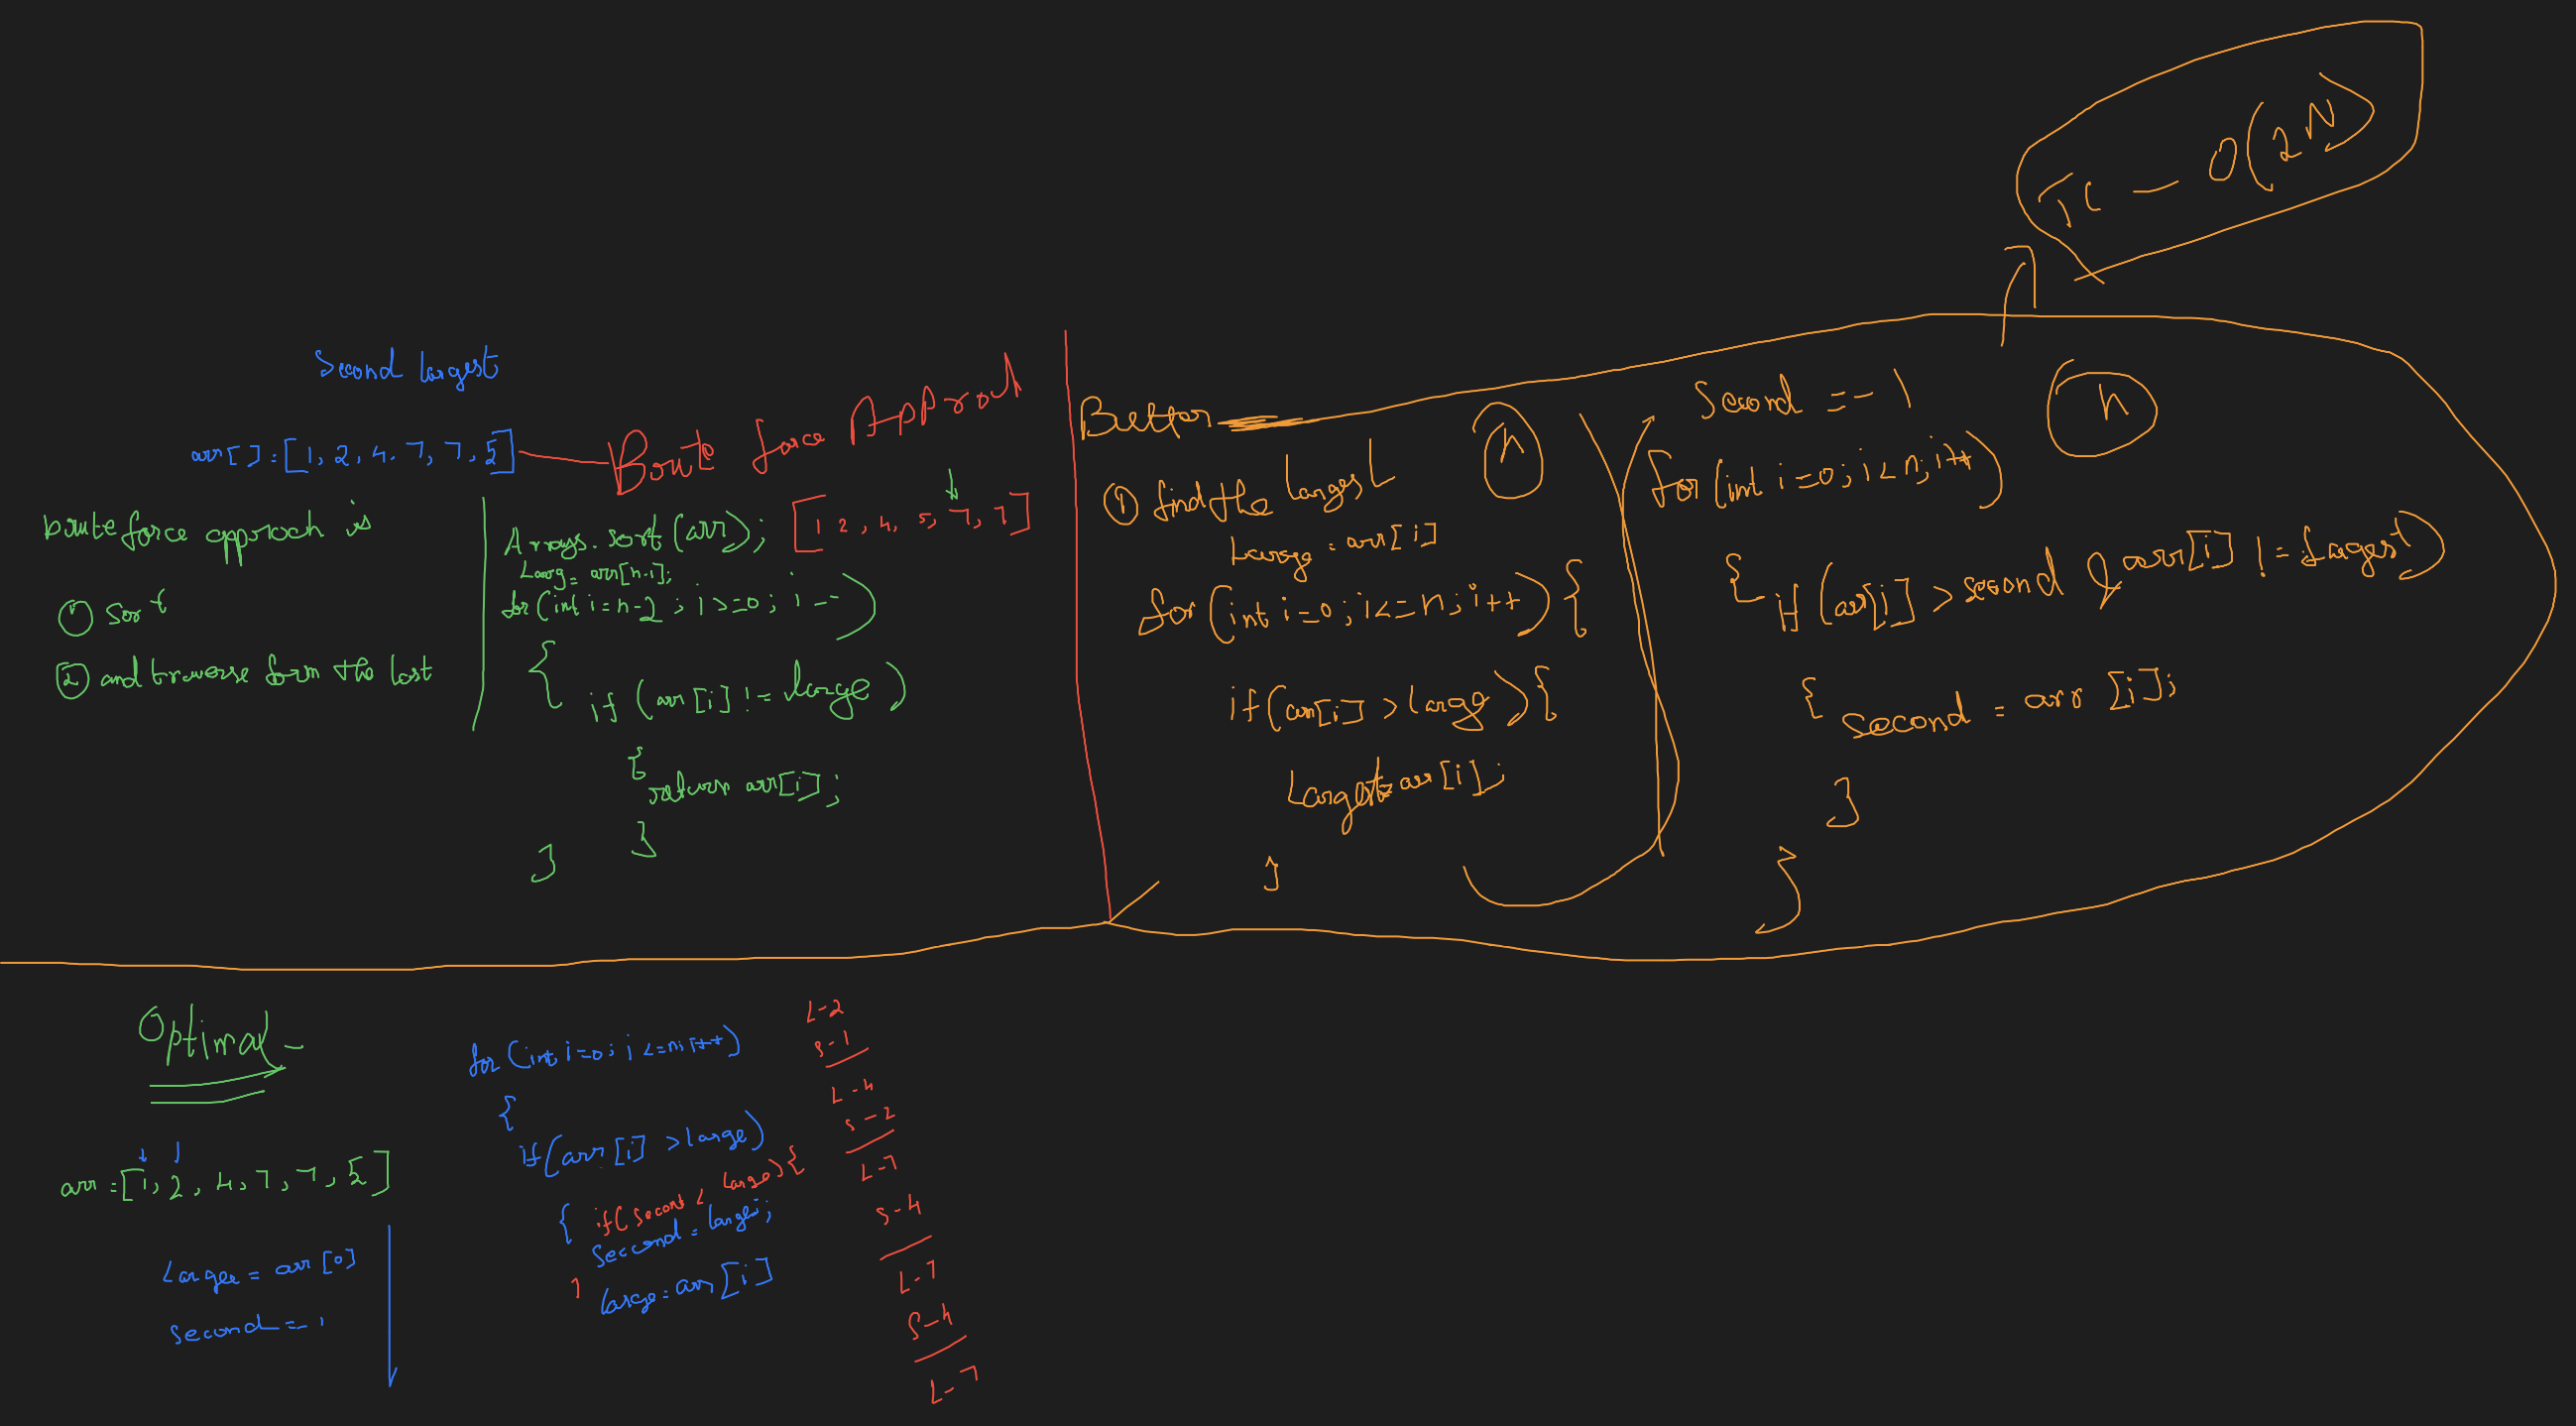 Second largest
arr[]:[1, 2, 4. 7, 7, 5]
Brute force Approch
brute force approch is
① Sort
② and traverse form the last
Arrays.sort(arr); [1 2, 4, 5, 7, 7]
Larg = arr[n-1];
for(int i=n-2; i>=0; i--)
{
if (arr[i] != large)
{
return arr[i];
}
}
Better
① find the largest
n
Large = arr[i]
for(int i=0; i<=n; i++){
if(arr[i] >larg){
Largest=arr[i];
}
Second =-1
n
for(int i=0; i<n; i++)
{ if (arr[i] > second & arr[i] != largest)
{ second = arr[i];
}
}
TC - O(2N)
Optimal -
arr =[1, 2, 4, 7, 7, 5]
Large = arr[0]
Second =-1
for (int i=0; i<=n; i++)
{
if(arr[i] >large)
{ if(second < large){
Second = large;
} large = arr[i]
L-2
S-1
L-4
S-2
L-7
S-4
L-7
S-4
L-7